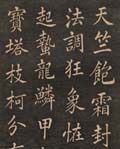 天竺飽霜封
法調狂象恠
起蟄龍鱗甲
寶塔枝柯分